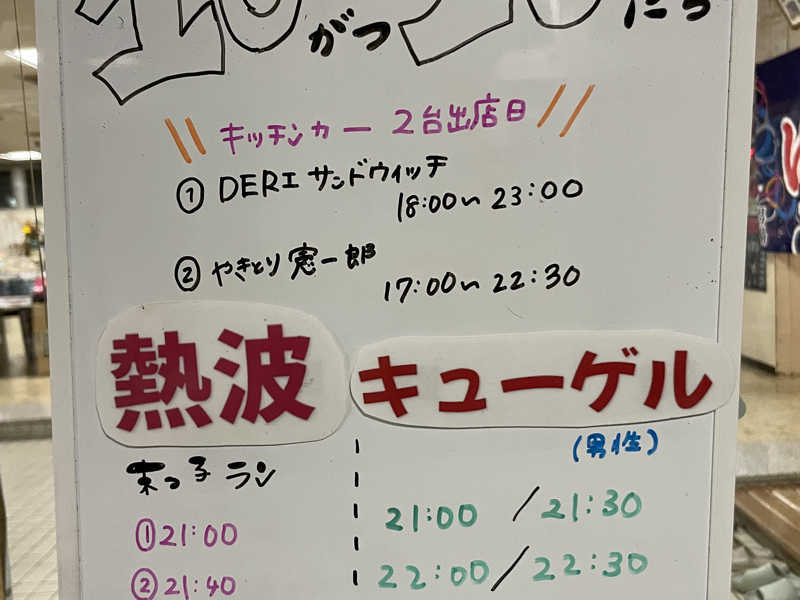 10がつ10にち
\\ キッチンカー 2台出店日 //
① DERI サンドウィッチ
18:00〜23:00
② やきとり 憲一郎
17:00〜22:30
熱波
キューゲル
末っ子ラン
(男性)
①21:00
21:00 / 21:30
②21:40
22:00 / 22:30